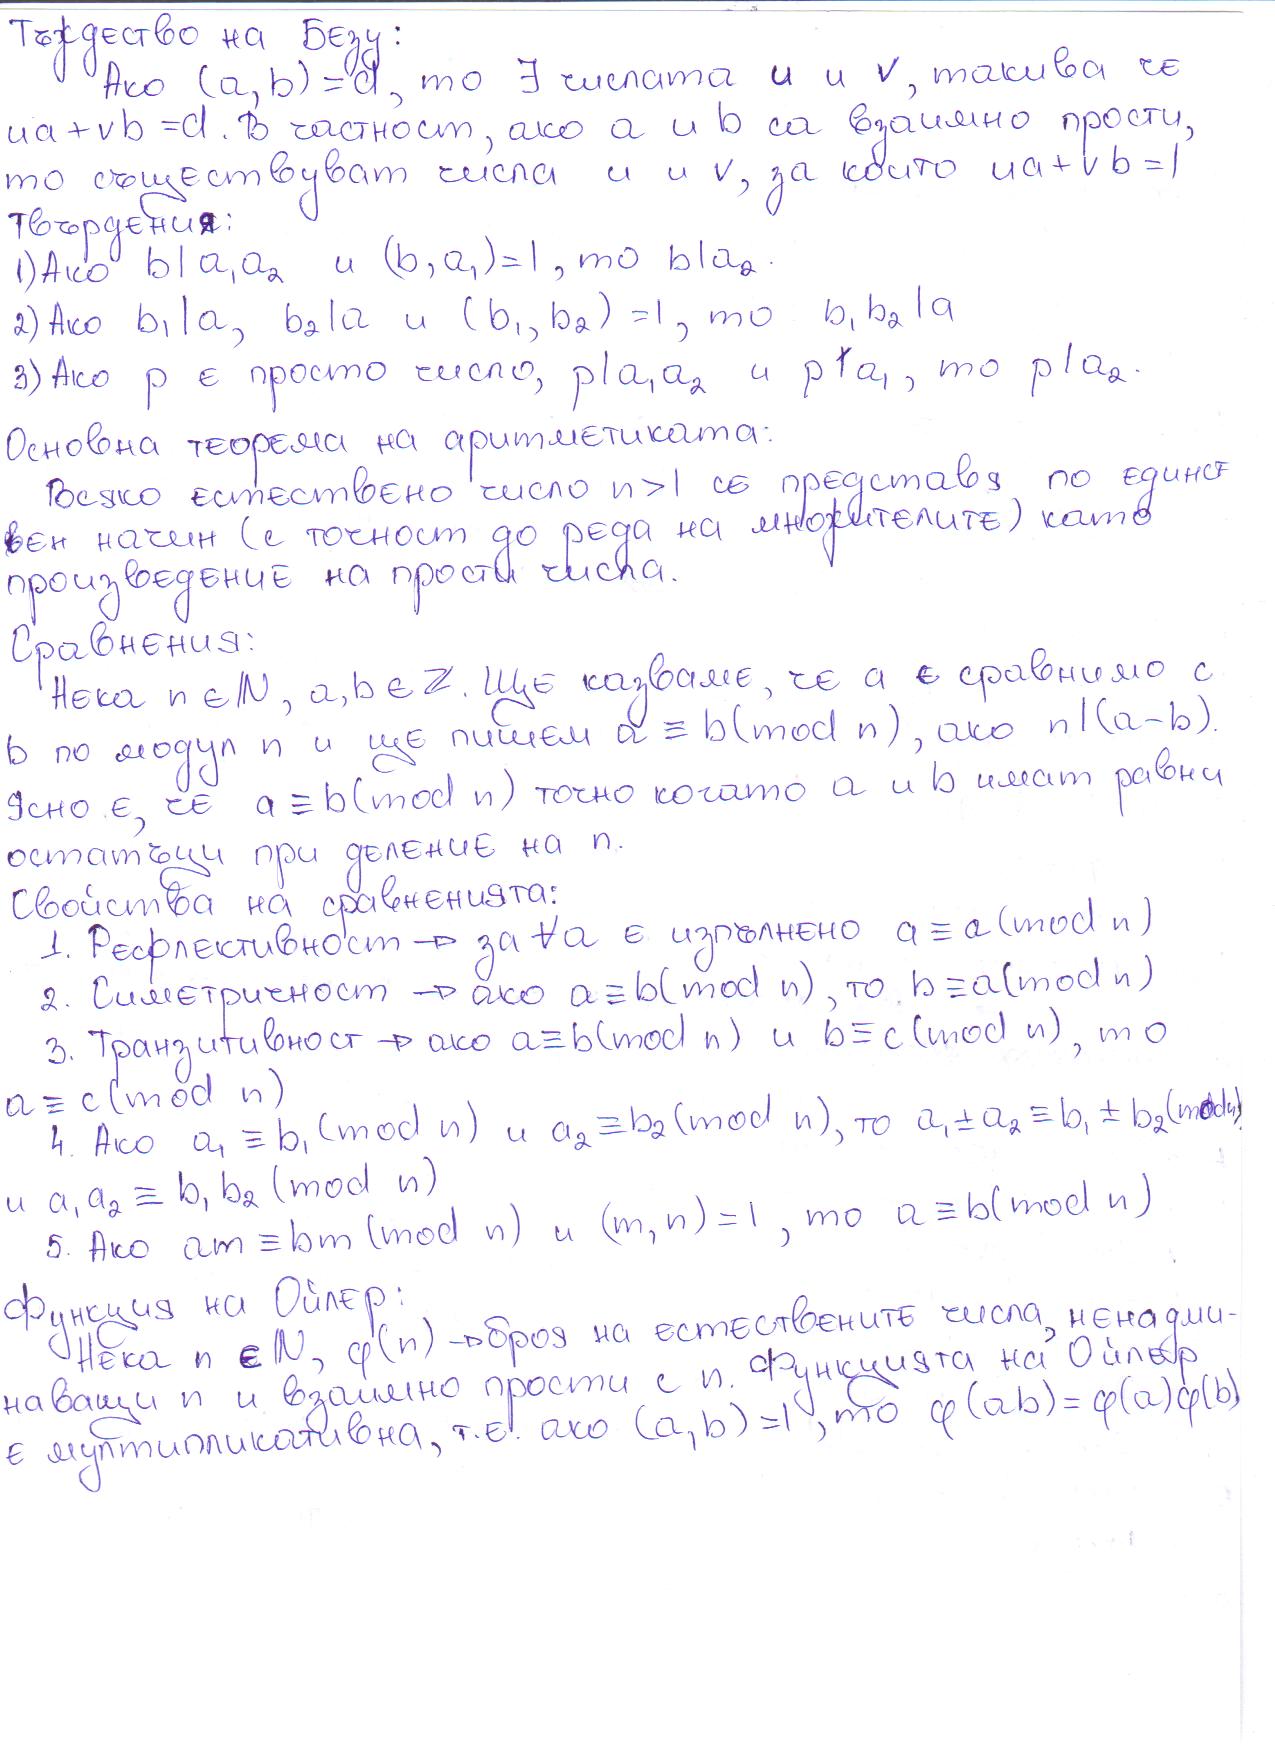 Тъждество на Безу:
Ако (a,b)=d, то ∃ числата u и v, такива че
ua+vb=d. В частност, ако a и b са взаимно прости,
то съществуват числа u и v, за които ua+vb=1
Твърдения:
1) Ако b|a₁a₂ и (b,a₁)=1, то b|a₂.
2) Ако b₁|a, b₂|a и (b₁,b₂)=1, то b₁b₂|a
3) Ако p е просто число, p|a₁a₂ и p∤a₁, то p|a₂.
Основна теорема на аритметиката:
Всяко естествено число n>1 се представя по единст
вен начин (с точност до реда на множителите) като
произведение на прости числа.
Сравнения:
Нека n∈ℕ, a,b∈ℤ. Ще казваме, че a е сравнимо с
b по модул n и ще пишем a≡b(mod n), ако n|(a-b).
Ясно е, че a≡b(mod n) точно когато a и b имат равни
остатъци при деление на n.
Свойства на сравненията:
1. Рефлективност → за ∀a е изпълнено a≡a(mod n)
2. Симетричност → ако a≡b(mod n), то b≡a(mod n)
3. Транзитивност → ако a≡b(mod n) и b≡c(mod n), то
a≡c(mod n)
4. Ако a₁≡b₁(mod n) и a₂≡b₂(mod n), то a₁±a₂≡b₁±b₂(mod n)
и a₁a₂≡b₁b₂(mod n)
5. Ако am≡bm(mod n) и (m,n)=1, то a≡b(mod n)
Функция на Ойлер:
Нека n∈ℕ, φ(n) → броя на естествените числа, ненадми-
наващи n и взаимно прости с n. Функцията на Ойлер
е мултипликативна, т.е. ако (a,b)=1, то φ(ab)=φ(a)φ(b)